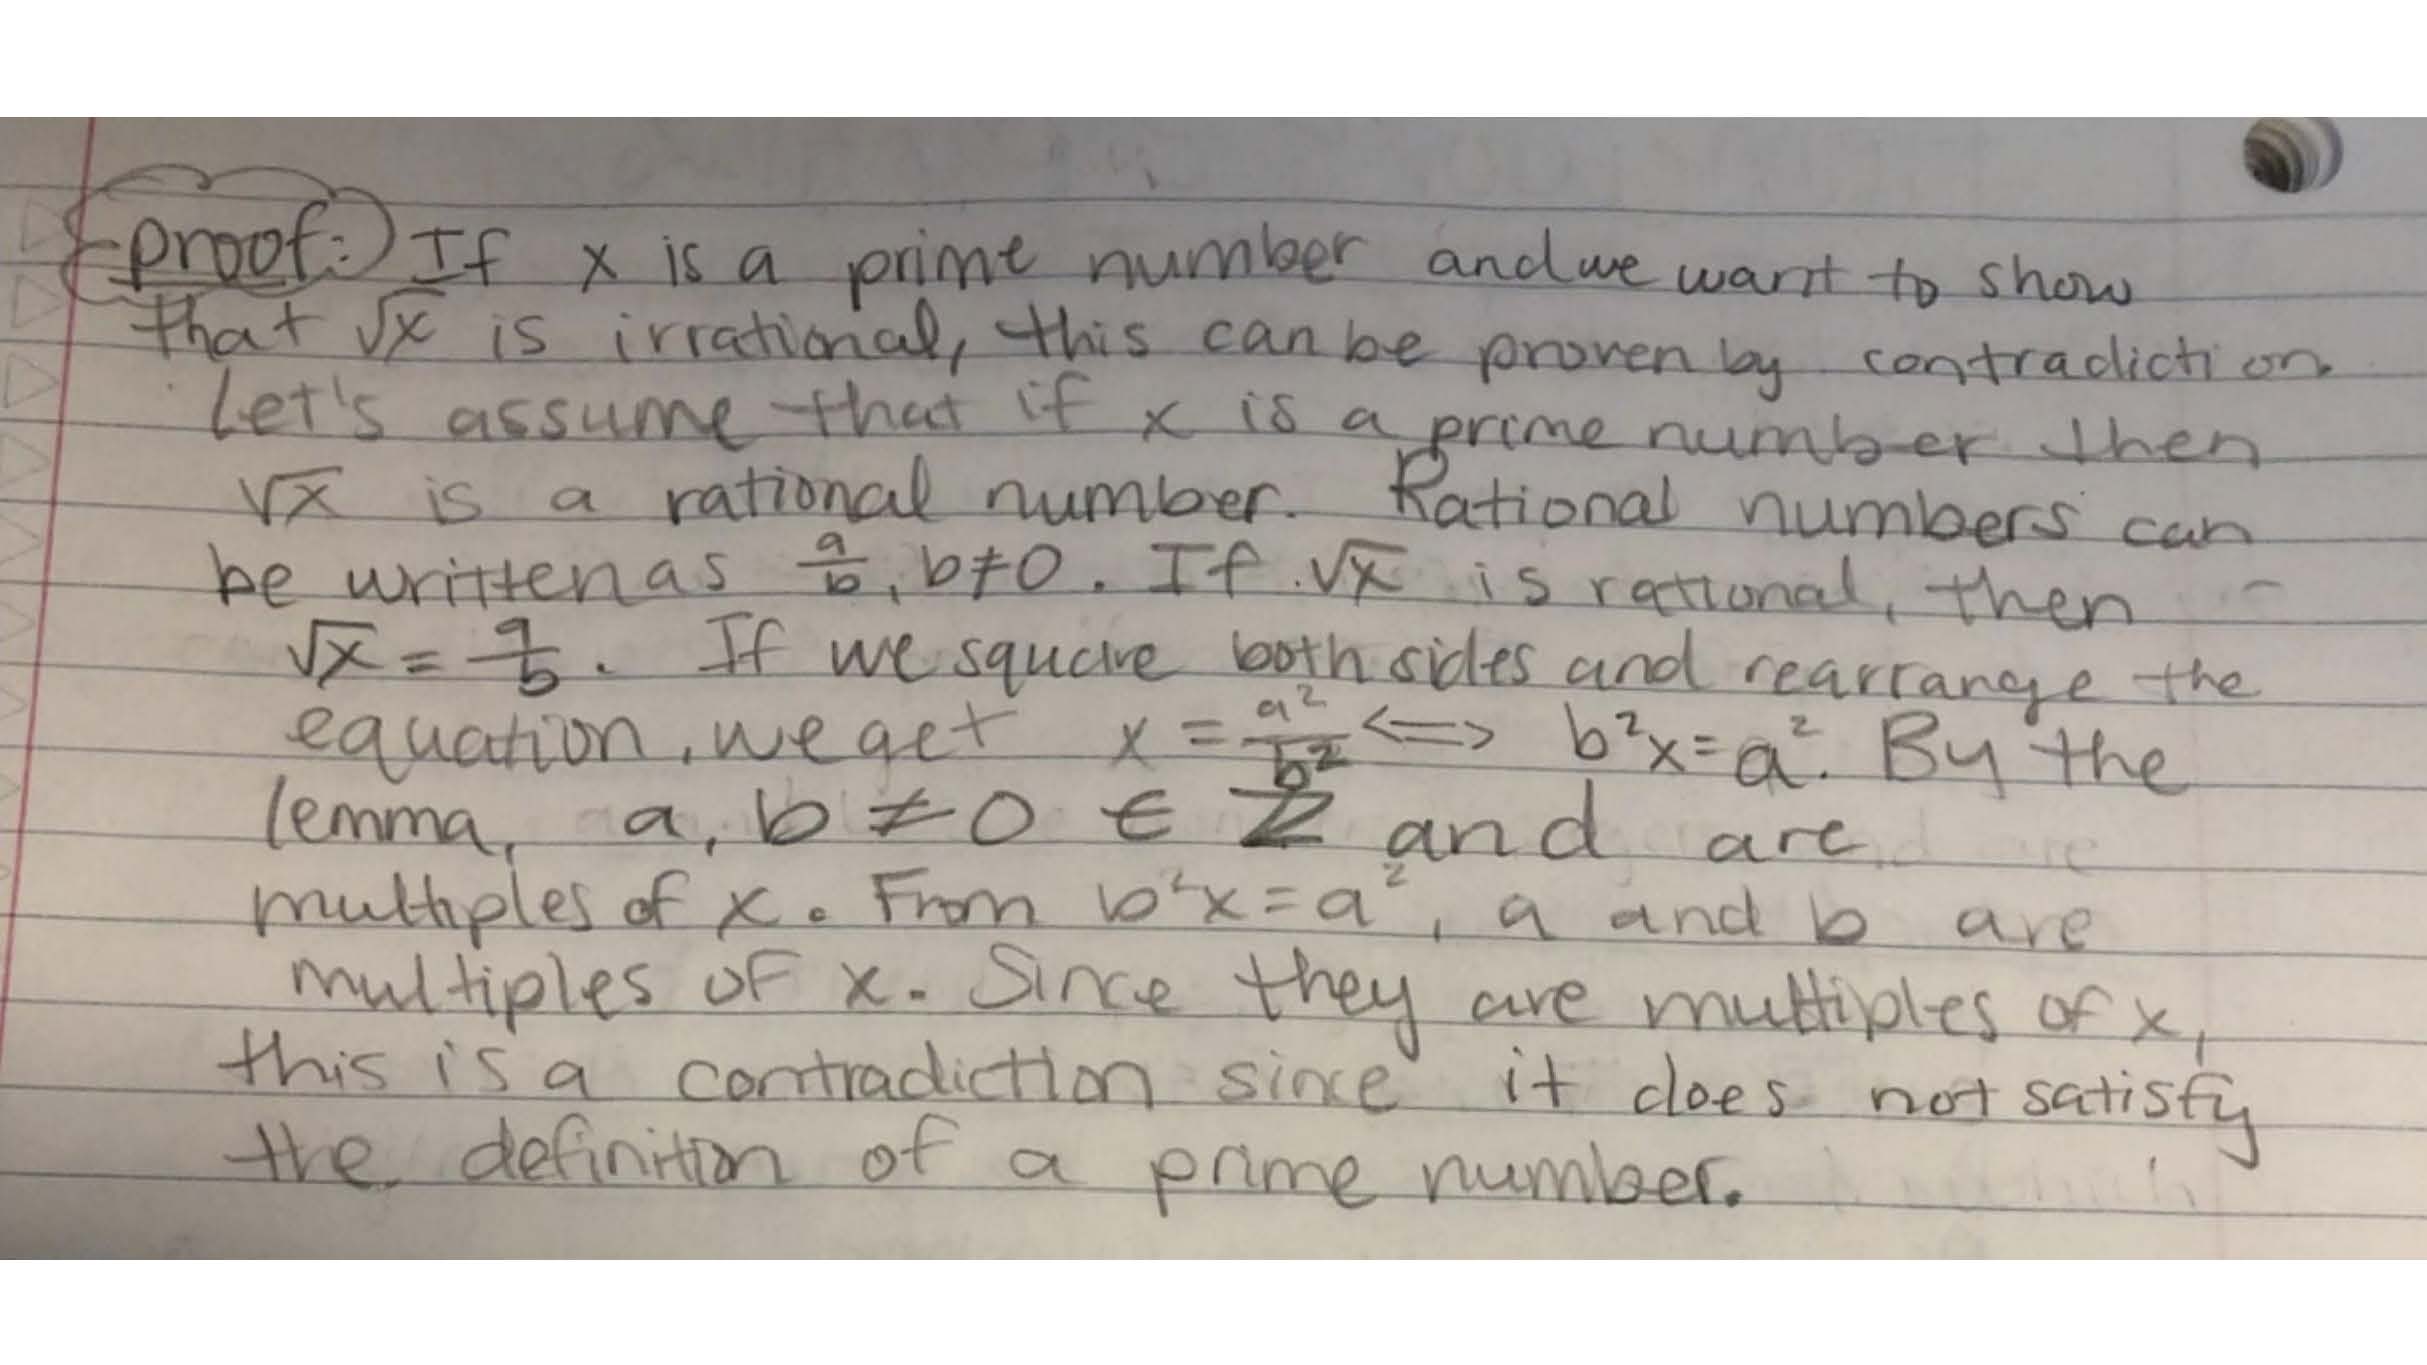 proof: If x is a prime number and we want to show
that √x is irrational, this can be proven by contradiction.
Let's assume that if x is a prime number then
√x is a rational number. Rational numbers can
be written as a/b, b≠0. If √x is rational, then
√x = a/b. If we square both sides and rearrange the
equation, we get x = a²/b² <=> b²x = a². By the
lemma, a, b ≠ 0 ∈ ℤ and are
multiples of x. From b²x = a², a and b are
multiples of x. Since they are multiples of x,
this is a contradiction since it does not satisfy
the definition of a prime number.